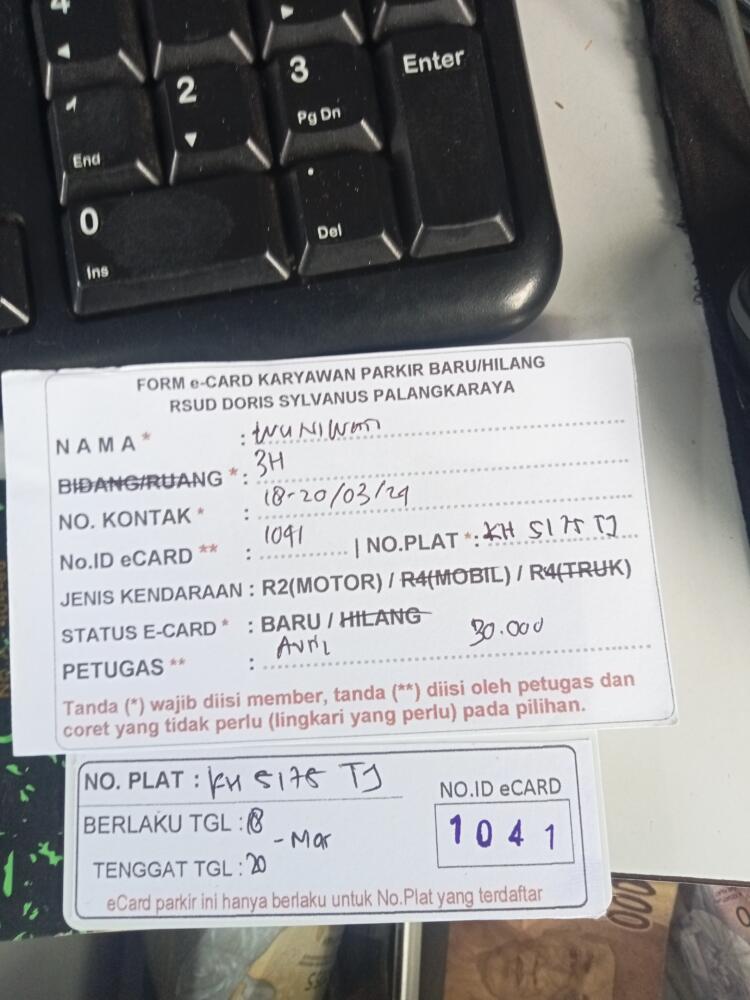 4
1
End
2
3
Pg Dn
Enter
0
Ins
.
Del
FORM e-CARD KARYAWAN PARKIR BARU/HILANG
RSUD DORIS SYLVANUS PALANGKARAYA
NAMA * :
BIDANG/RUANG * : 3H
NO. KONTAK * : 18-20/03/24
No.ID eCARD ** : 1041 | NO.PLAT * : KH 5175 TJ
JENIS KENDARAAN : R2(MOTOR) / R4(MOBIL) / R4(TRUK)
STATUS E-CARD * : BARU / HILANG
PETUGAS ** : Avril 30.000
Tanda (*) wajib diisi member, tanda (**) diisi oleh petugas dan
coret yang tidak perlu (lingkari yang perlu) pada pilihan.
NO. PLAT : KH 5175 TJ
NO.ID eCARD
1041
BERLAKU TGL : 18
- Mar
TENGGAT TGL : 20
eCard parkir ini hanya berlaku untuk No.Plat yang terdaftar